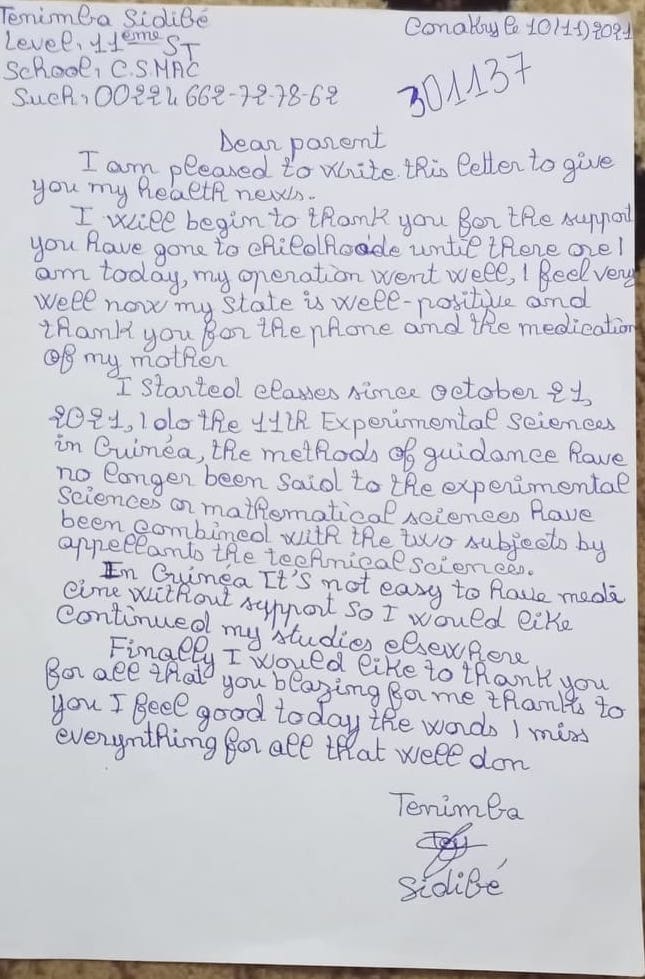 Tenimba Sidibé
Conakry le 10/11/2021
Level: 11ème ST
School: C.S.MAC
Such: 00224 662-72-78-62
301137
Dear parent
I am pleased to write this letter to give
you my health news.
I will begin to thank you for the support
you have gone to childhoode until there are I
am today, my operation went well, I feel very
well now my state is well-positive and
thank you for the phone and the medication
of my mother
I started classes since october 21,
2021, I do the 11th Experimental sciences
in Guinéa, the methods of guidance have
no longer been said to the experimental
sciences or mathematical sciences have
been combined with the two subjects by
appellants the technical sciences.
In Guinéa It's not easy to have medi
cine without support so I would like
continued my studies elsewhere
Finally I would like to thank you
for all that you blazing for me thanks to
you I feel good today the words I miss
everynthing for all that well don
Tenimba
Sidibé